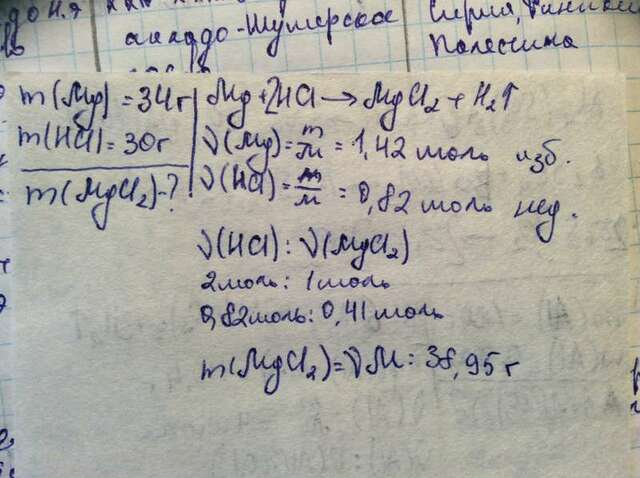 аккадо-Шумерское
Палестина
m(Mg) = 34г
m(HCl) = 30г
m(MgCl₂)-?
Mg + 2HCl → MgCl₂ + H₂↑
ν(Mg) = m/M = 1,42 моль изб.
ν(HCl) = m/M = 0,82 моль нед.
ν(HCl) : ν(MgCl₂)
2моль : 1моль
0,82моль : 0,41 моль
m(MgCl₂) = νM = 38,95 г